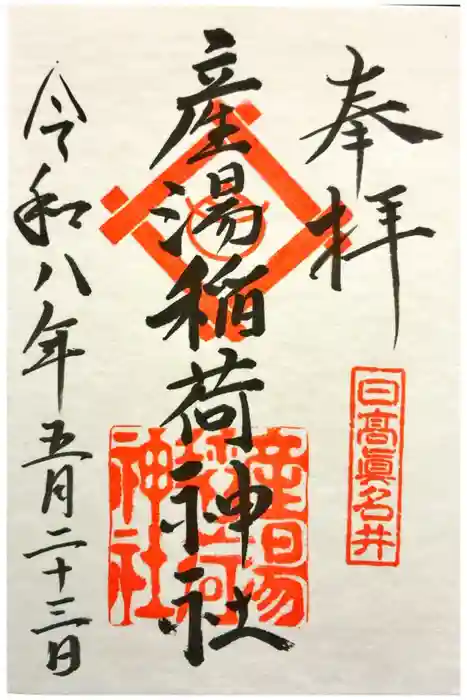 奉拝
日高眞名井
産湯稲荷神社
産湯
稲荷
神社
令和八年五月二十三日